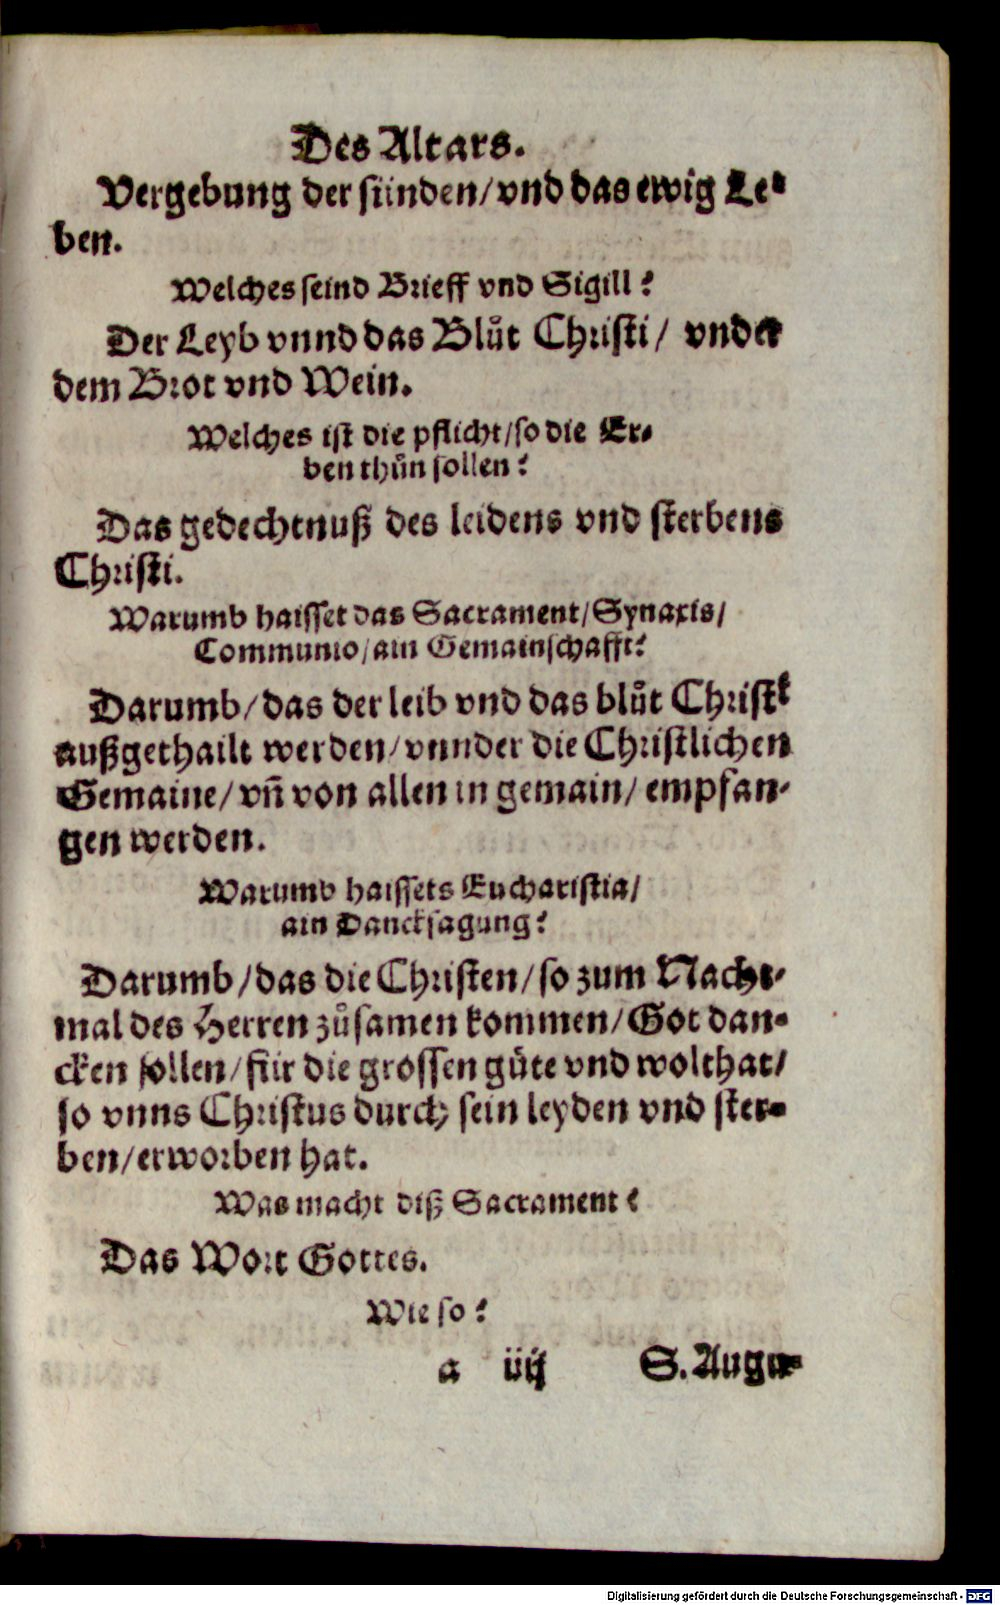 Des Altars.
Vergebung der sünden/ vnd das ewig Le-
ben.
Welches seind Brieff vnd Sigill?
Der Leyb vnnd das Blůt Christi/ vnder
dem Brot vnd Wein.
Welches ist die pflicht/ so die Er-
ben thůn sollen?
Das gedechtnuß des leidens vnd sterbens
Christi.
Warumb haisset das Sacrament/ Synaxis/
Communio/ ain Gemainschafft?
Darumb/ das der leib vnd das blůt Christi
außgethailt werden/ vnnder die Christlichen
Gemaine/ vñ von allen in gemain/ empfan-
gen werden.
Warumb haissets Eucharistia/
ain Dancksagung?
Darumb/ das die Christen/ so zum Nacht-
mal des Herren zůsamen kommen/ Got dan-
cken sollen/ für die grossen güte vnd wolthat/
so vnns Christus durch sein leyden vnd ster-
ben/ erworben hat.
Was macht diß Sacrament?
Das Wort Gottes.
Wie so?
a iiij S. Augu-
Digitalisierung gefördert durch die Deutsche Forschungsgemeinschaft - DFG